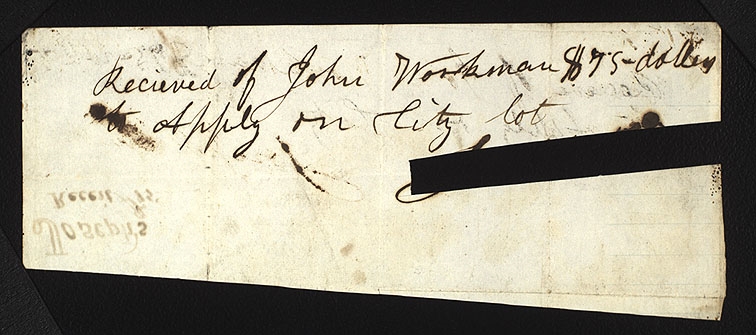 Recieved of John Workman $75-dollers
to Apply on City lot
Joseph's
Recent 75